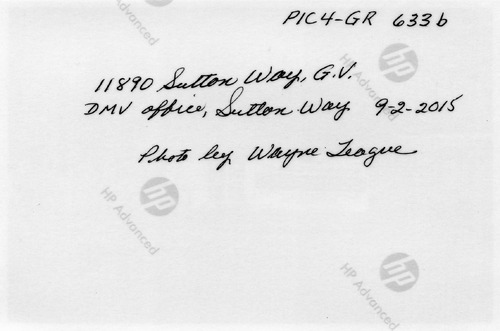 PIC4-GR 633b
11890 Sutton Way, G.V.
DMV office, Sutton Way 9-2-2015
Photo by Wayne League
HP Advanced
HP Advanced
HP Advanced
HP Advanced